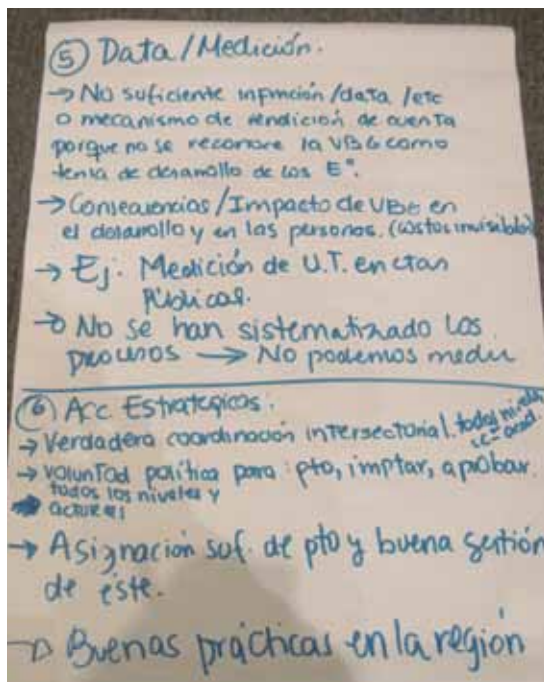 ⑤ Data/Medición.
→ No suficiente infmción/data/etc
o mecanismo de rendición de cuenta
porque no se reconore la VBG como
tema de desarrollo de los E°.
→ Consecuencias/Impacto de VBG en
el desarrollo y en las personas. (costos invisibles)
→ Ej. Medición de U.T. en ctas
Públicas.
→ No se han sistematizado los
procesos → No podemos medir
⑥ Acc Estratégicas.
→ Verdadera coordinación intersectorial. todos niveles
→ voluntad política para: pto, implar, aprobar.
todos los niveles y
actores
→ Asignación suf. de pto y buena gestión
de éste.
→ Buenas prácticas en la región